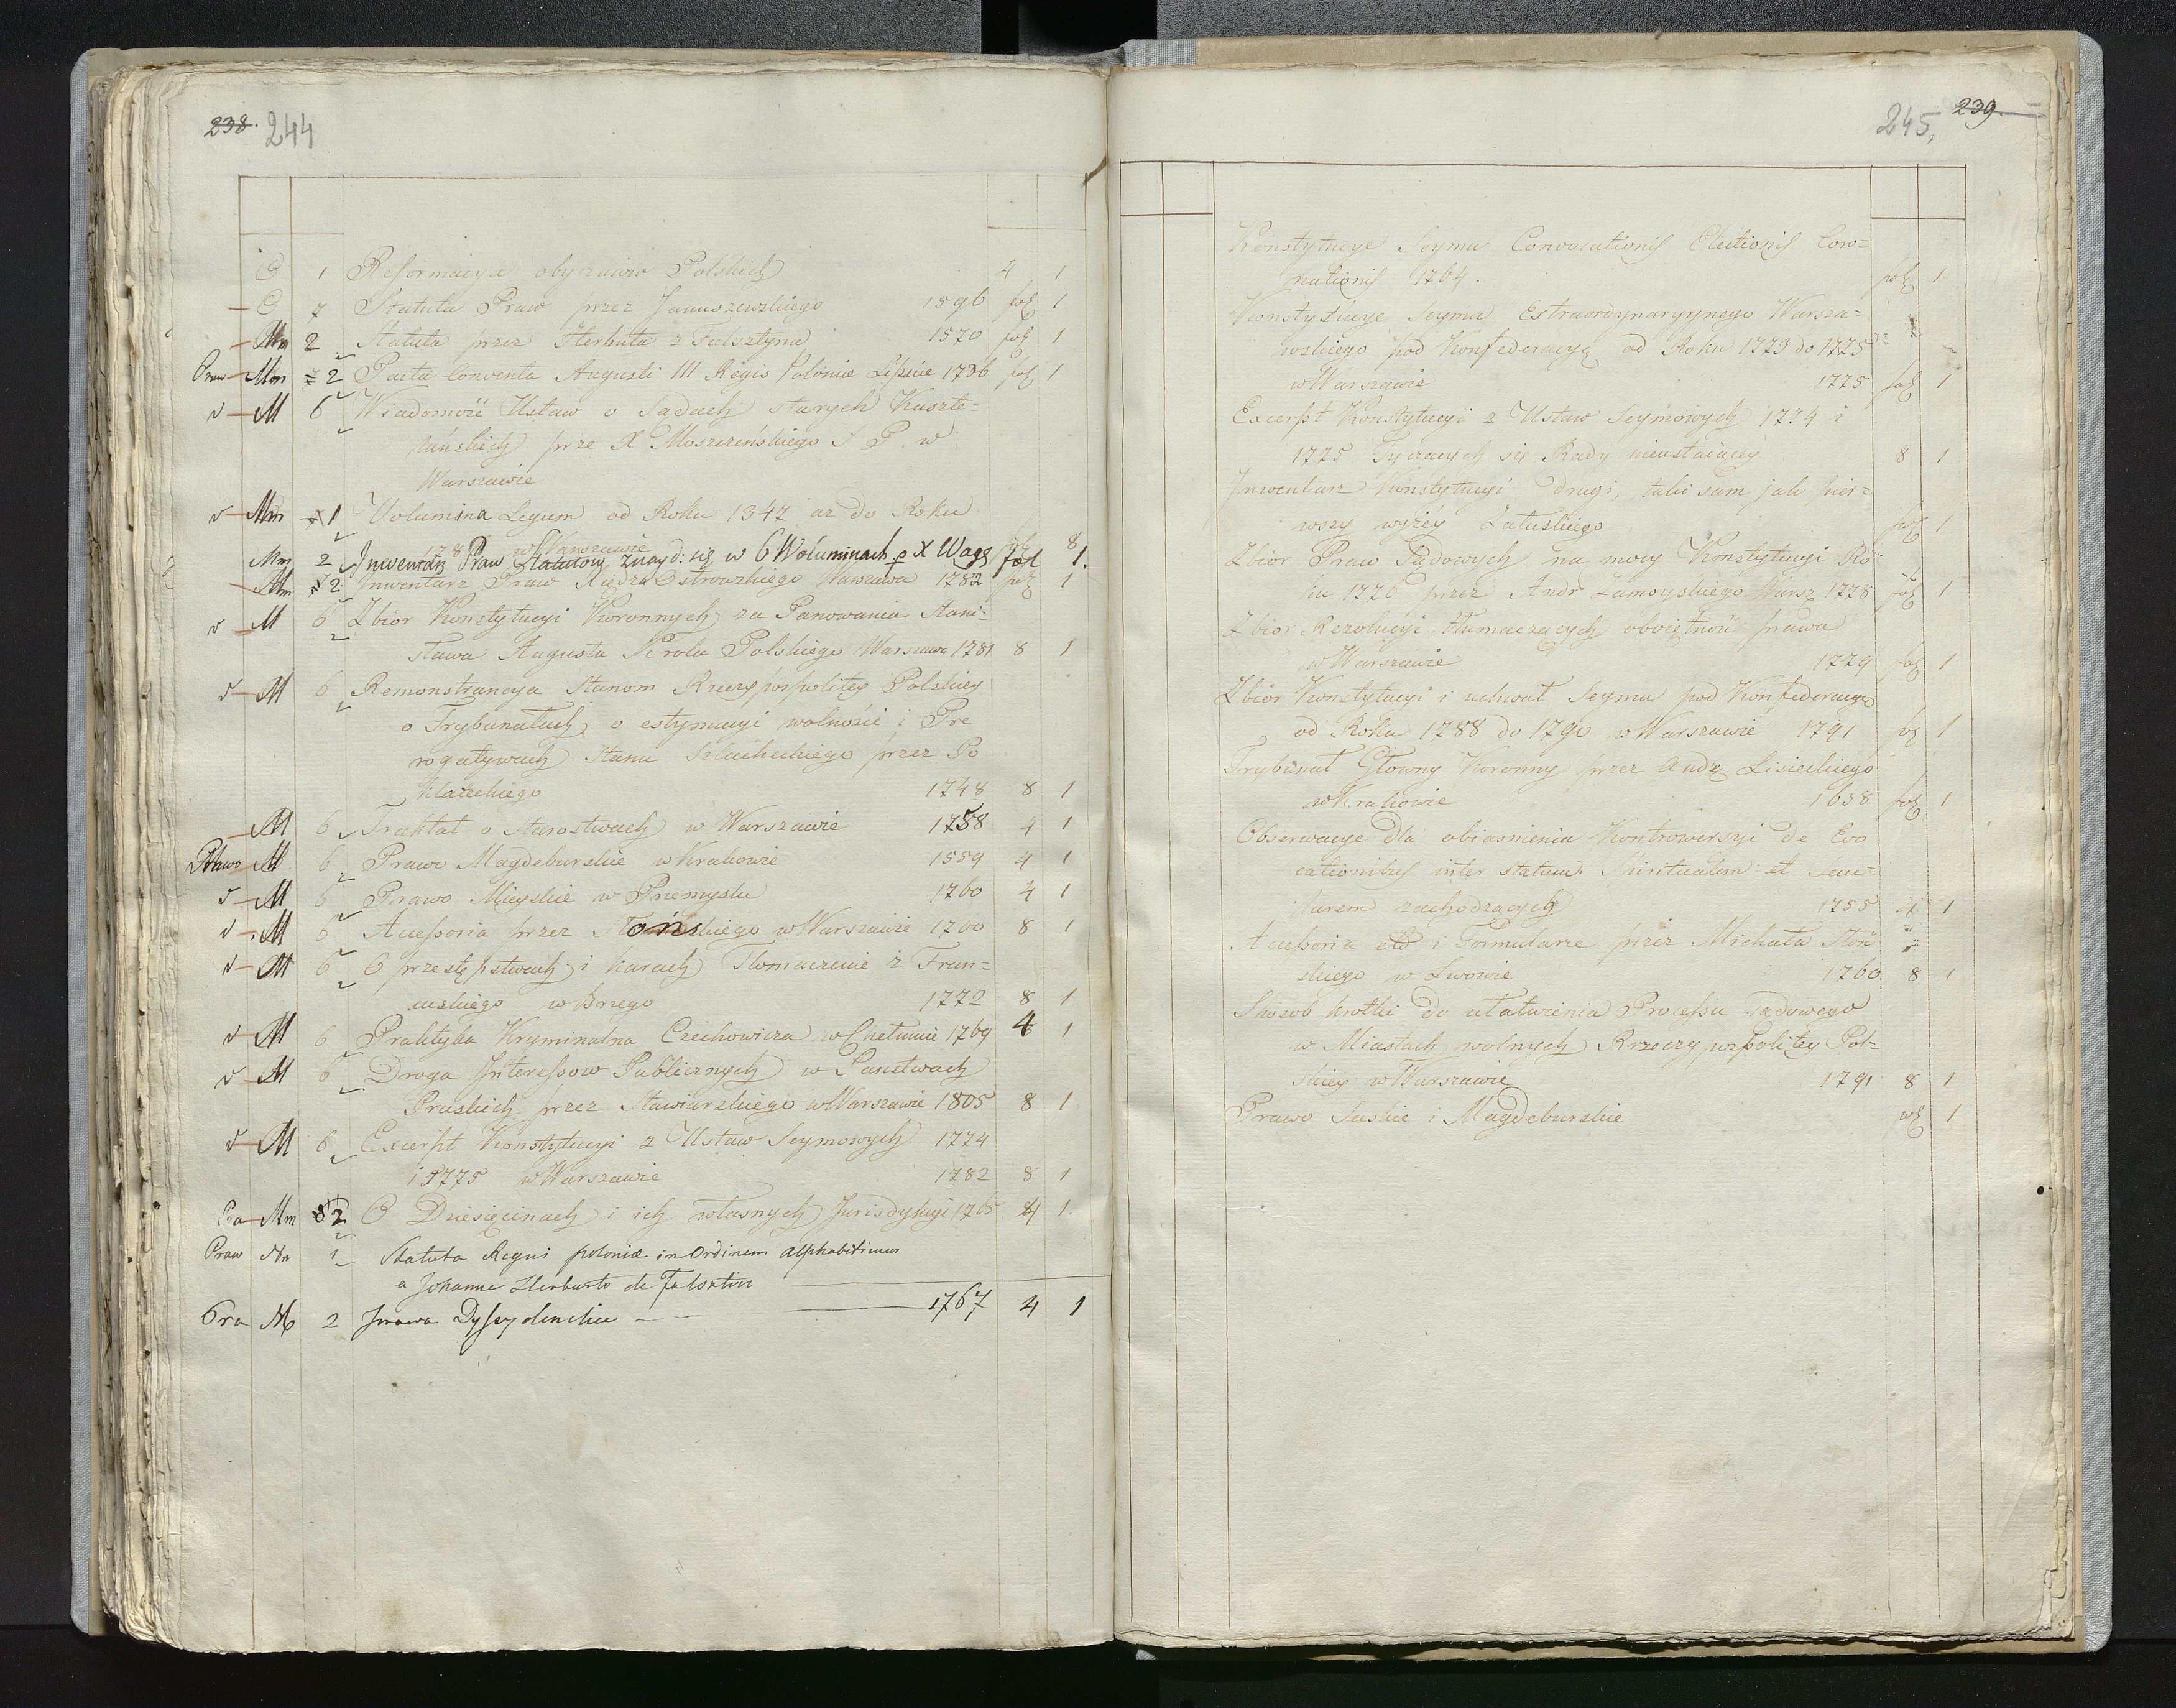 238. 244
C 1 Reformacya obyczaiow Polskich 4 1
C 7 Statuta Praw przez Januszewskiego 1596 fol 1
Mm 2 Statuta przez Herbuta z Fulsztyna 1570 fol 1
Praw Mm 2 Pacta Conventa Augusti III Regis Poloniæ Lipsiæ 1736 fol 1
v M 6 Wiadomość Ustaw o Sądach starych Kaszte=
lańskich prze X Moszczeńskiego S P. w
Warszawie
v Mm 1 Volumina Legum od Roku 1347 az do Roku
178 w Warszawie fol 8
Mm 2 Inwentarz Praw Statutow znayd: się w 6 Woluminach p X Wagę fol 1.
Mm 2 Inwentarz Praw Xiędza Ostrowskiego Warszawa 1782 fol 1
v M 6 Zbior Konstytucyi Koronnych za Panowania Stani=
sława Augusta Krola Polskiego Warszawa 1781 8 1
v M 6 Remonstrancya Stanom Rzeczypospolitey Polskiey
o Trybunałach, o estymacyi wolności i Pre
rogatywach Stanu Szlacheckiego przez Po
kłateckiego 1748 8 1
M 6 Traktat o Starostwach w Warszawie 1758 4 1
Prawo M 6 Prawo Magdeburskie w Krakowie 1559 4 1
v M 6 Prawo Mieyskie w Przemyslu 1760 4 1
v M 6 Accessoria przez Słońskiego w Warszawie 1760 8 1
v M 6 O przestępstwach i karach Tłomaczenie z Fran=
cuskiego w Brzegu 1772 8 1
v M 6 Praktyka Kryminalna Czechowicza w Chełmnie 1769 4 1
v M 6 Droga Interessow Publicznych w Panstwach
Pruskich przez Stawiarskiego w Warszawie 1805 8 1
v M 6 Excerpt Konstytucyi z Ustaw Seymowych 1774
i 1775 w Warszawie 1782 8 1
Pra Mm 2 O Dziesięcinach i ich własnych Jurisdykcyi 1765 4 1
Praw Mm 1 Statuta Regni poloniæ in Ordinem alphabeticum
a Johanne Herburto de Falsztin
Pra M 2 Prawa Dyssydenckie 1767 4 1
245, 239
Konstytucye Seymu Convocationis Electionis Coro=
nationis 1764. fol 1
Konstytucye Seymu Estraordynaryynego Warsza=
wskiego pod Konfederacyą od Roku 1773 do 1775
w Warszawie 1775 fol 1
Excerpt Konstytucyi z Ustaw Seymowych 1774 i
1775 Tyczących się Rady nieustaiącey 8 1
Inwentarz Konstytucyi drugi, taki sam jak pier=
wszy wyżéy Załuskiego fol 1
Zbior Praw Sądowych na mocy Konstytucyi Ro
ku 1776 przez Andr Zamoyskiego Warsz 1778 fol 1
Zbior Rezolucyi tłumaczących obojętność prawa
w Warszawie 1779 fol 1
Zbior Konstytucyi i uchwał Seymu pod Konfederacyą
od Roku 1788 do 1790 w Warszawie 1791 fol 1
Trybunał Głowny Koronny przez Andr Lisieckiego
w Krakowie 1638 fol 1
Obserwacye dla obiasnienia Kontrowersyi de Evo
cationibus inter statum Spiritualem et Secu=
larem zachodzących 1755 4 1
Accessoria etc i Formularze przez Michała Słoń
skiego w Lwowie 1760 8 1
Sposob krotki do ułatwienia Processu sądowego
w Miastach wolnych Rzeczypospolitey Pol=
skiey w Warszawie 1791 8 1
Prawo Saskie i Magdeburskie fol 1